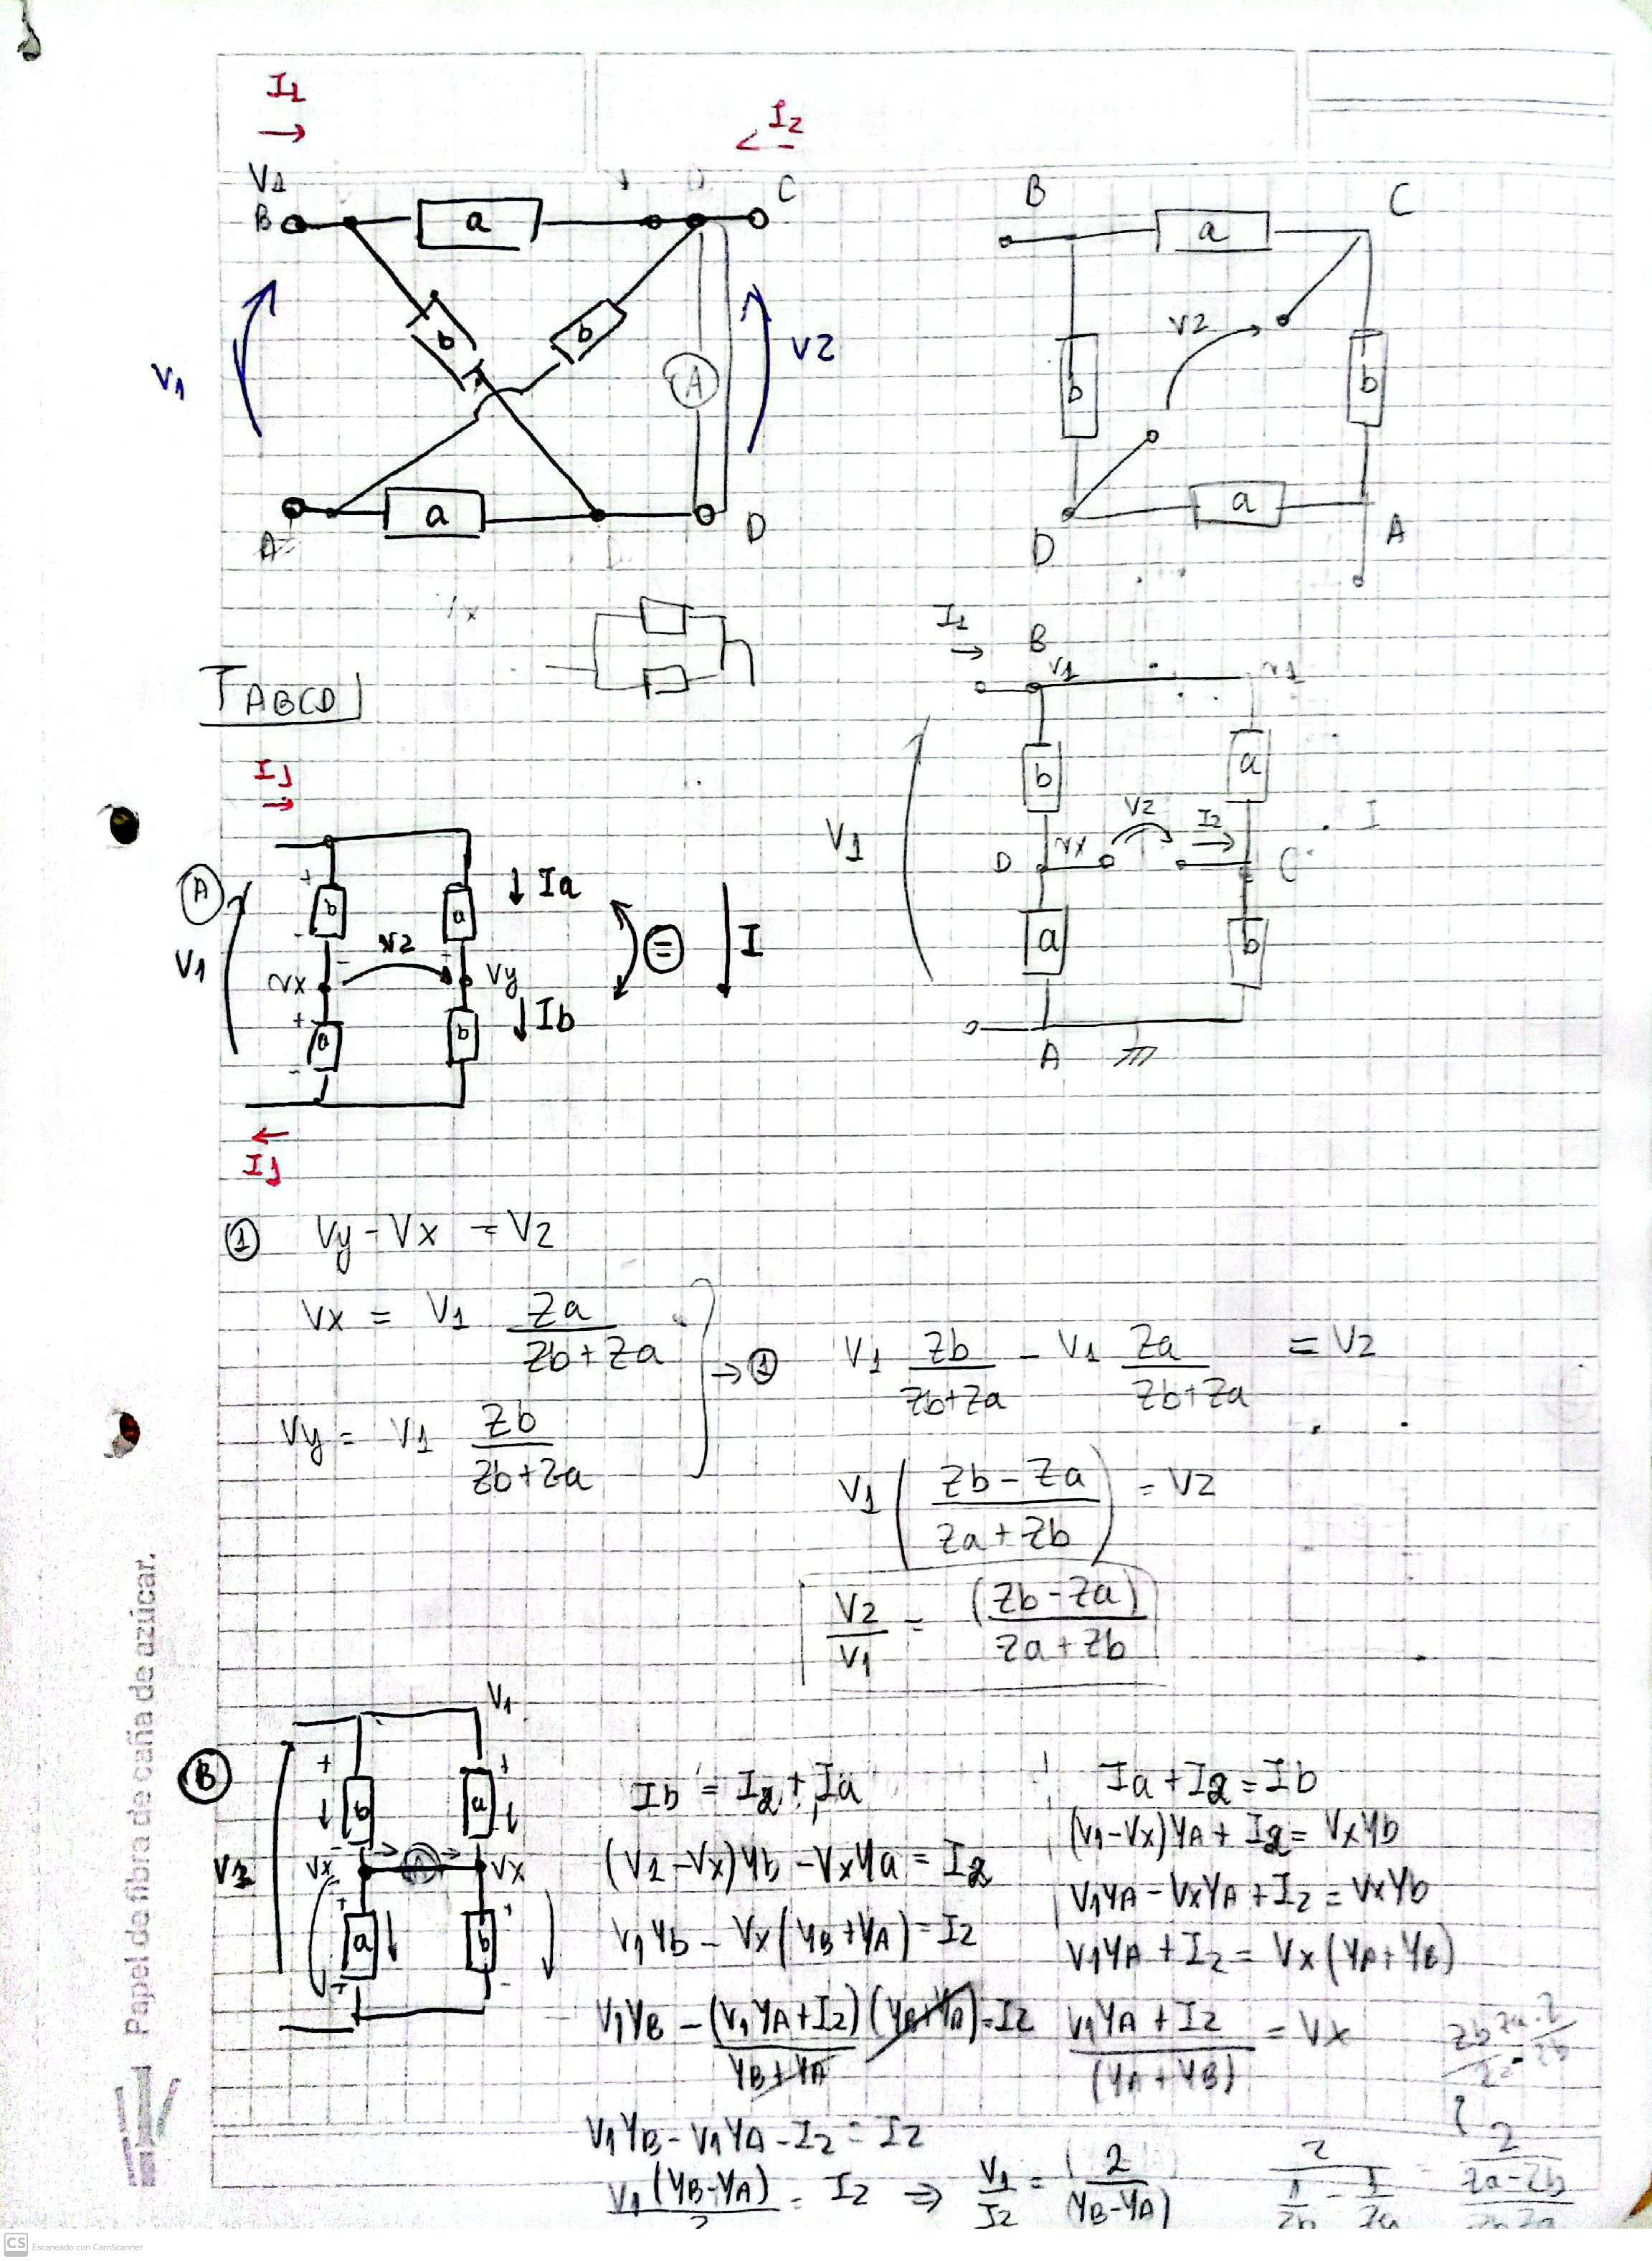 I1
I2
V1
B
a
C
b
b
V1
A
V2
a
A
D
B
C
a
V2
b
b
a
D
A
TABCD
I1
B
V1
V1
b
a
V1
V2
I2
I
D
Vx
C
a
b
A
I1
A
b
a
Ia
V1
V2
=
I
Vx
Vy
Ib
a
b
I1
1 Vy - Vx = V2
Vx = V1 Za / Zb+Za
Vy = V1 Zb / Zb+Za
→ 1 V1 Zb / Zb+Za - V1 Za / Zb+Za = V2
V1 ( Zb - Za / Za + Zb ) = V2
V2 / V1 = (Zb-Za) / Za + Zb
B
V1
b
a
Vx
A
Vx
a
b
Ib = I2 + Ia
(V1 - Vx)Yb - VxYa = I2
V1Yb - Vx(YB+YA) = I2
V1YB - (V1YA+I2) / YB+YA (YB+YA) = I2
V1YB - V1YA - I2 = I2
V1 (YB-YA) / 2 = I2 ⇒ V1 / I2 = 2 / (YB-YA)
Ia + I2 = Ib
(V1-Vx)YA + I2 = VxYb
V1YA - VxYA + I2 = VxYb
V1YA + I2 = Vx(YA+YB)
V1YA + I2 / (YA+YB) = Vx
2 / 1/Zb - 1/Za
2 / Za-Zb / Zb Za
Papel de fibra de caña de azúcar.
CS Escaneado con CamScanner